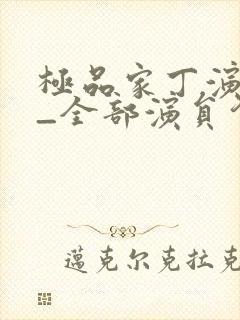 極品家丁演
—全部演員
邁克尔克拉克